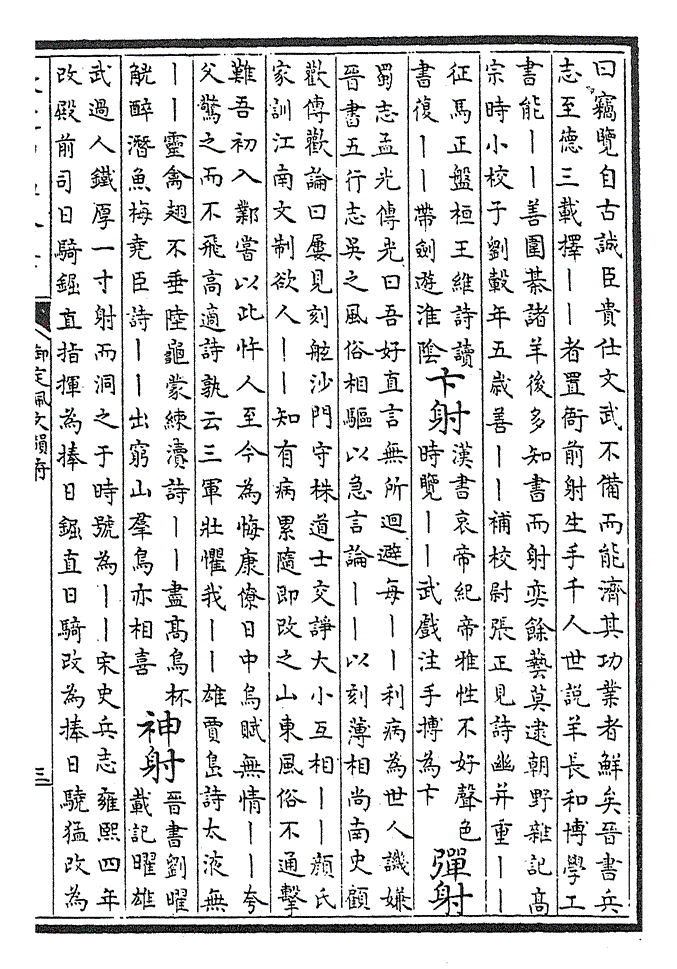 曰竊覽自古誠臣貴仕文武不備而能濟其功業者鮮矣晉書兵
志至德三載擇——者置衙前射生手千人世説羊長和博學工
書能——善圍棊諸羊後多知書而射奕餘藝莫逮朝野雜記高
宗時小校子劉轂年五歳善——補校尉張正見詩幽并重——
征馬正盤桓王維詩讀
書復——帶劍遊淮陰
卞射
漢書哀帝紀帝雅性不好聲色
時覽——武戲注手搏為卞
彈射
蜀志孟光傳光曰吾好直言無所迴避每——利病為世人譏嫌
晉書五行志吳之風俗相驅以急言論——以刻薄相尚南史顧
歡傳歡論曰屢見刻舷沙門守株道士交諍大小互相——顔氏
家訓江南文制欲人——知有病累隨即改之山東風俗不通擊
難吾初入鄴嘗以此忤人至今為悔康僚日中烏賦無情——夸
父驚之而不飛高適詩孰云三軍壯懼我——雄賈島詩太液無
——靈禽翅不垂陸龜蒙練瀆詩——盡高鳥杯
觥醉潛魚梅堯臣詩——出窮山羣鳥亦相喜
神射
晉書劉曜
載記曜雄
武過人鐵厚一寸射而洞之于時號為——宋史兵志雍熙四年
改殿前司日騎鋸直指揮為捧日鋸直日騎改為捧日驍猛改為
御定佩文韻府
三